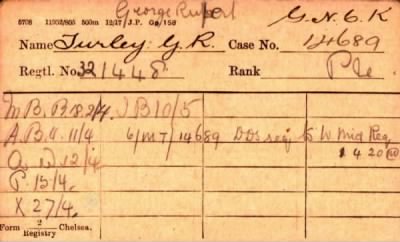 George Rupert G.N.6.K
5708 11902/805 500m 12/17 J.P. Gp/158
Name Turley. G.R. Case No. 14689
Regtl. No. 321448 Rank Pte.
M B. B. 18.2/4. J B 10/5
A.B.U. 11/4 6/MT/14689 D.Ds req 15 W Mid Reg.
12/4 1 4 20
P. 15/4.
X 27/4.
Form 2 Chelsea.
Registry